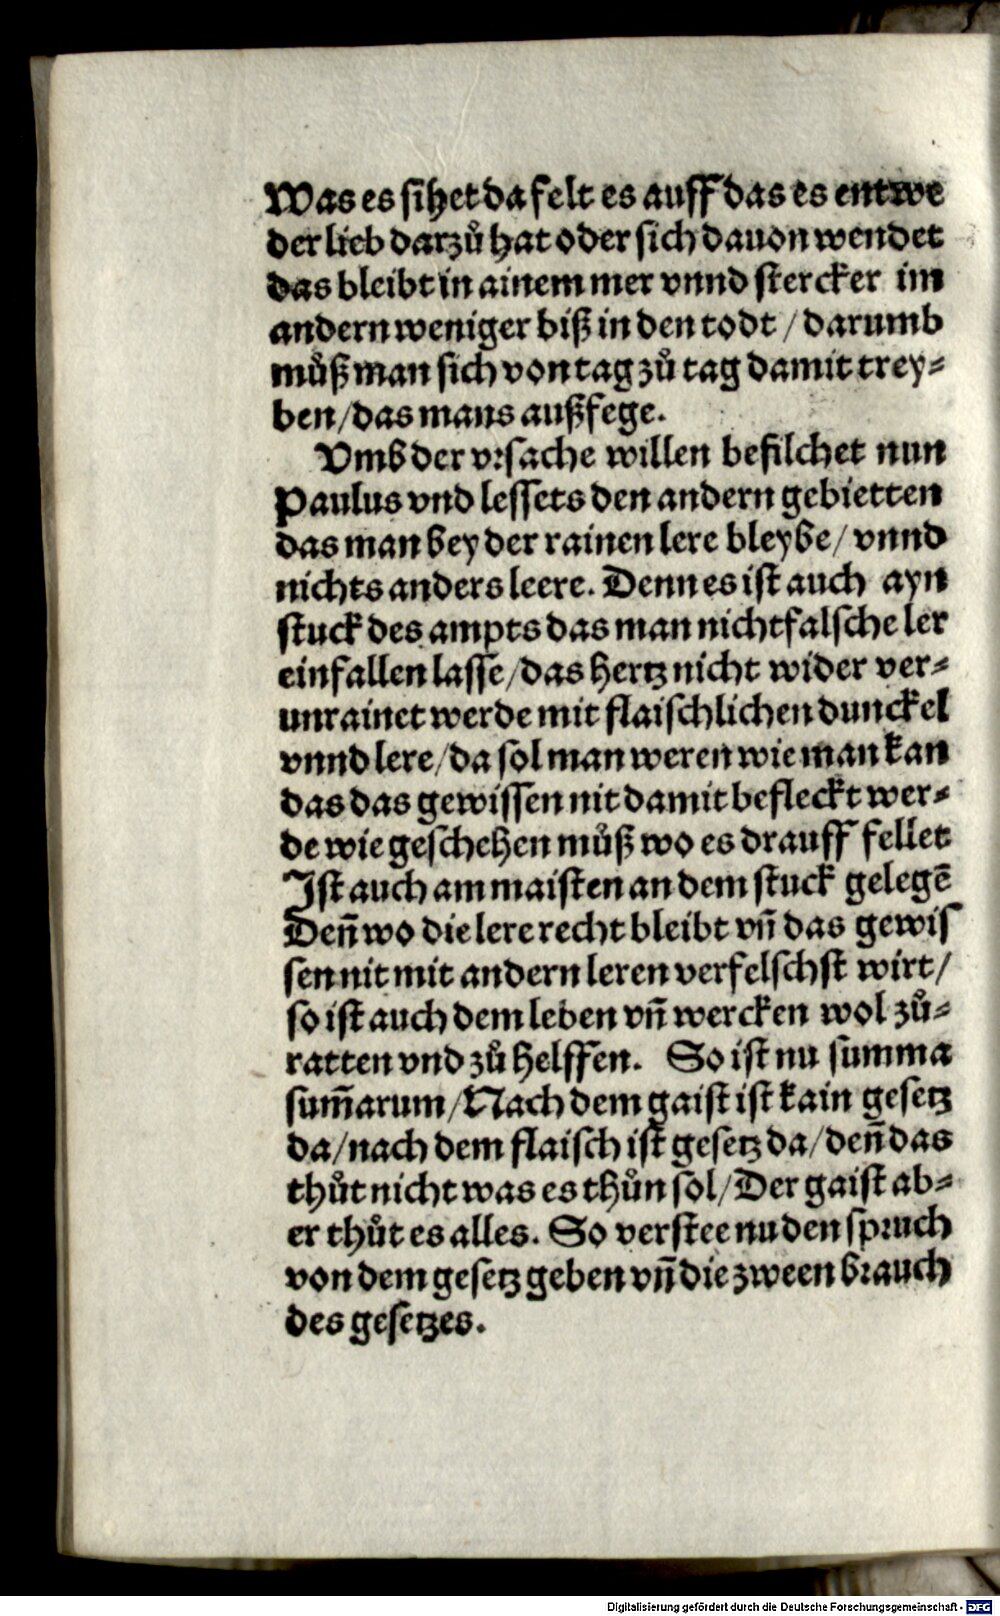 Was es sihet da felt es auff das es entwe
der lieb darzů hat oder sich dauon wendet
das bleibt in ainem mer vnnd stercker im
andern weniger biß in den todt / darumb
můß man sich von tag zů tag damit trey⸗
ben / das mans außfege.
Vmb der vrsache willen befilchet nun
Paulus vnd lessets den andern gebietten
das man bey der rainen lere bleybe / vnnd
nichts anders leere. Denn es ist auch ayn
stuck des ampts das man nicht falsche ler
einfallen lasse / das hertz nicht wider ver⸗
unrainet werde mit flaischlichen dunckel
vnnd lere / da sol man weren wie man kan
das das gewissen nit damit befleckt wer⸗
de wie geschehen můß wo es drauff fellet
Ist auch am maisten an dem stuck gelegē
Deñ wo die lere recht bleibt vñ das gewis
sen nit mit andern leren verfelschst wirt /
so ist auch dem leben vñ wercken wol zů⸗
ratten vnd zů helffen. So ist nu summa
sum̃arum / Nach dem gaist ist kain gesetz
da / nach dem flaisch ist gesetz da / deñ das
thůt nicht was es thůn sol / Der gaist ab⸗
er thůt es alles. So verstee nu den spruch
von dem gesetz geben vñ die zween brauch
des gesetzes.
Digitalisierung gefördert durch die Deutsche Forschungsgemeinschaft - DFG